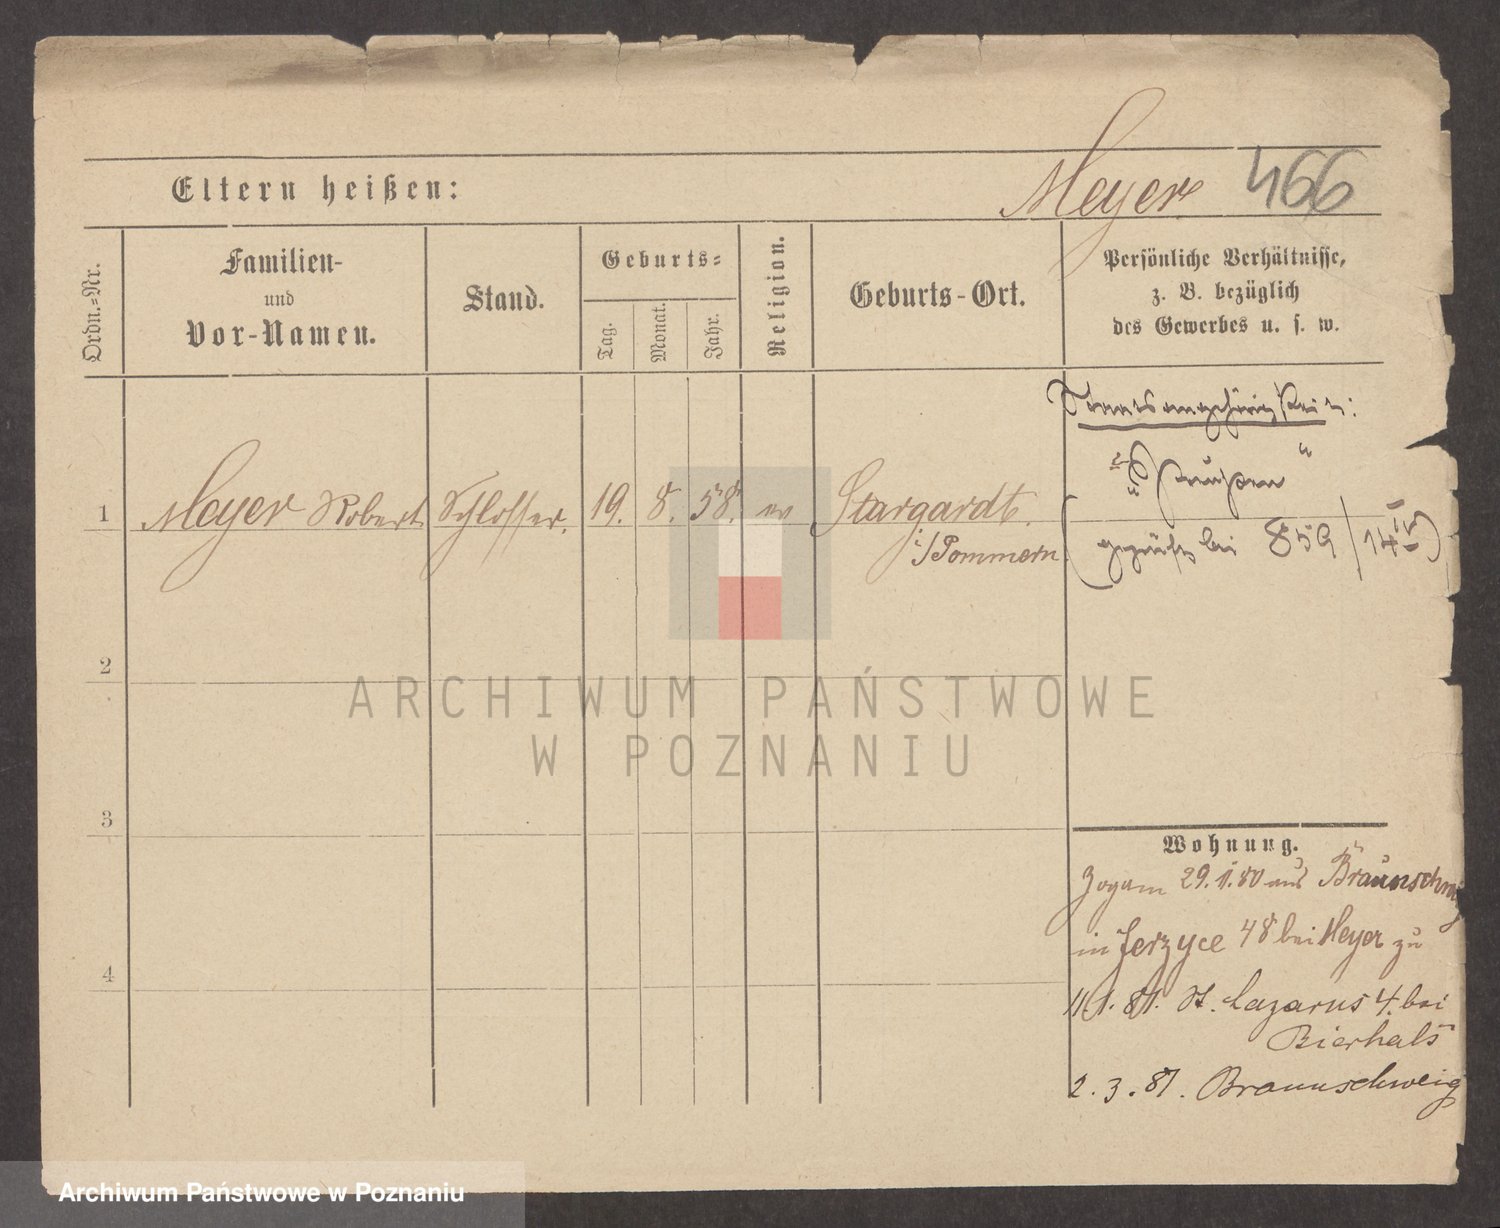 Eltern heißen: Meyer 466
Ordn.=Nr.
Familien-
und
Vor-Namen.
Stand.
Geburts=
Tag.
Monat.
Jahr.
Religion.
Geburts-Ort.
Persönliche Verhältnisse,
z. B. bezüglich
des Gewerbes u. s. w.
Staatsangehörigkeit:
"Preußen"
1 Meyer Robert Schlosser. 19. 8. 58. ev Stargardt.
i/Pommern
(geprüft bei 859/14
2
ARCHIWUM PAŃSTWOWE
W POZNANIU
3
Wohnung.
Zogam 29. 11. 80 aus Braunschweig
in Jerzyce 48 bei Meyer zu
11. 1. 81. St. Lazarus 4. bei
Bierhals
4
2. 3. 81. Braunschweig
Archiwum Państwowe w Poznaniu